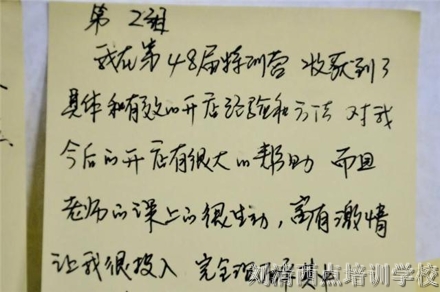 第2组
我在第48届特训营 收获到了
具体和有效的开店经验和方法 对我
今后的开店有很大的帮助 而且
老师的课上的很生动，富有激情
让我很投入 完全
西点培训学校